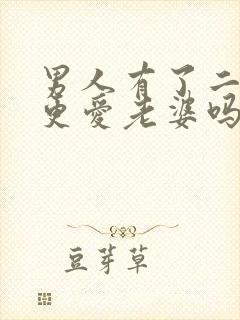 男人有了二
更爱老婆吗
豆芽草